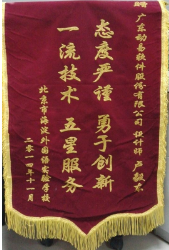 赠 广东动易软件股份有限公司 设计师 卢毅东
态度严谨 勇于创新
一流技术 五星服务
北京市海淀外国语实验学校
二零一四年十一月